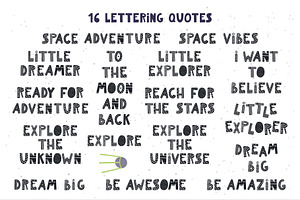 16 LETTERING QUOTES
SPACE ADVENTURE
SPACE VIBES
LITTLE
DREAMER
READY FOR
ADVENTURE
EXPLORE
THE
UNKNOWN
TO
THE
MOON
AND
BACK
EXPLORE
LITTLE
EXPLORER
REACH FOR
THE STARS
EXPLORE
THE
UNIVERSE
I WANT
TO
BELIEVE
LITTLE
EXPLORER
DREAM
BIG
DREAM BIG
BE AWESOME
BE AMAZING